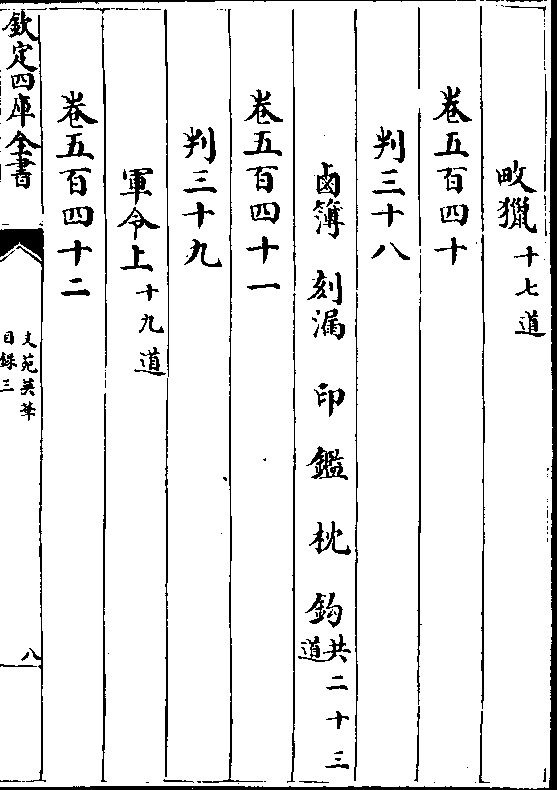 畋獵十七道
卷五百四十
判三十八
鹵簿 刻漏 印 鑑 枕 鈎共二十三道
卷五百四十一
判三十九
軍令上十九道
卷五百四十二
欽定四庫全書
文苑英華
目錄三
八